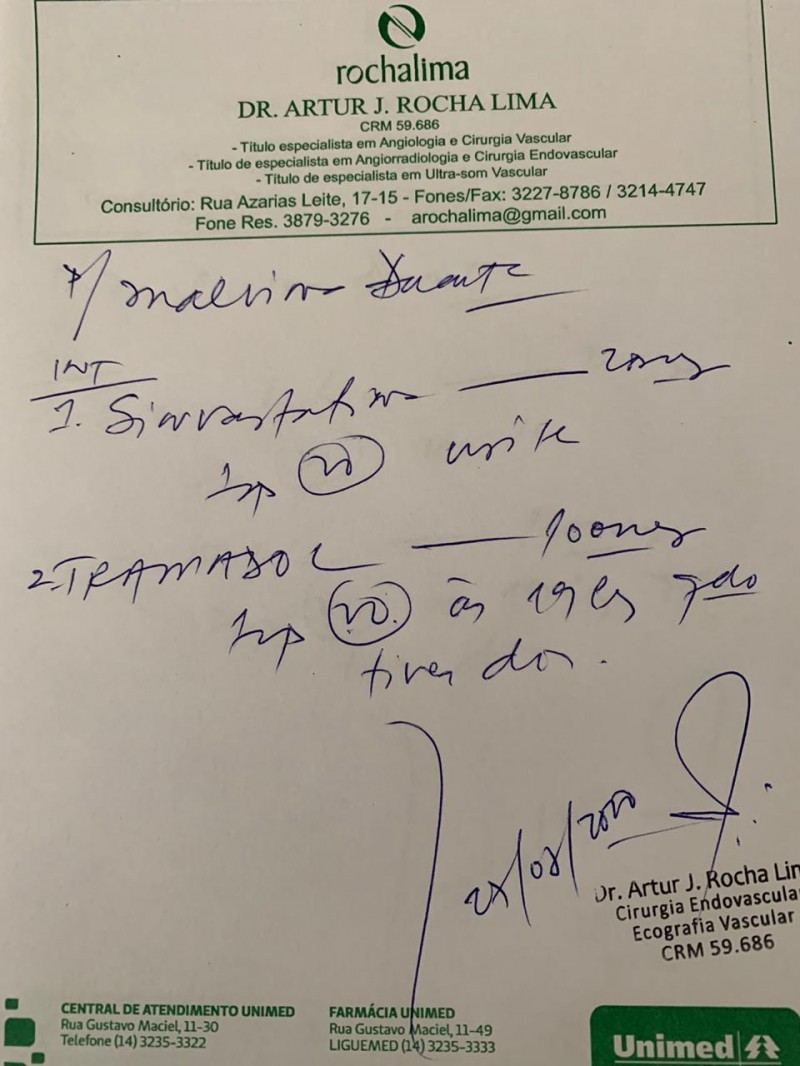 rochalima
DR. ARTUR J. ROCHA LIMA
CRM 59.686
- Título especialista em Angiologia e Cirurgia Vascular
- Título de especialista em Angiorradiologia e Cirurgia Endovascular
- Título de especialista em Ultra-som Vascular
Consultório: Rua Azarias Leite, 17-15 - Fones/Fax: 3227-8786 / 3214-4747
Fone Res. 3879-3276 - arochalima@gmail.com
p/ Malvina Duarte
INT
1. Sinvastatina — 20mg
1cp VO noite
2. TRAMADOL — 100mg
1cp VO. às
tiver dor.
Dr. Artur J. Rocha Lim
Cirurgia Endovascula
Ecografia Vascular
CRM 59.686
CENTRAL DE ATENDIMENTO UNIMED
Rua Gustavo Maciel, 11-30
Telefone (14) 3235-3322
FARMÁCIA UNIMED
Rua Gustavo Maciel, 11-49
LIGUEMED (14) 3235-3333
Unimed